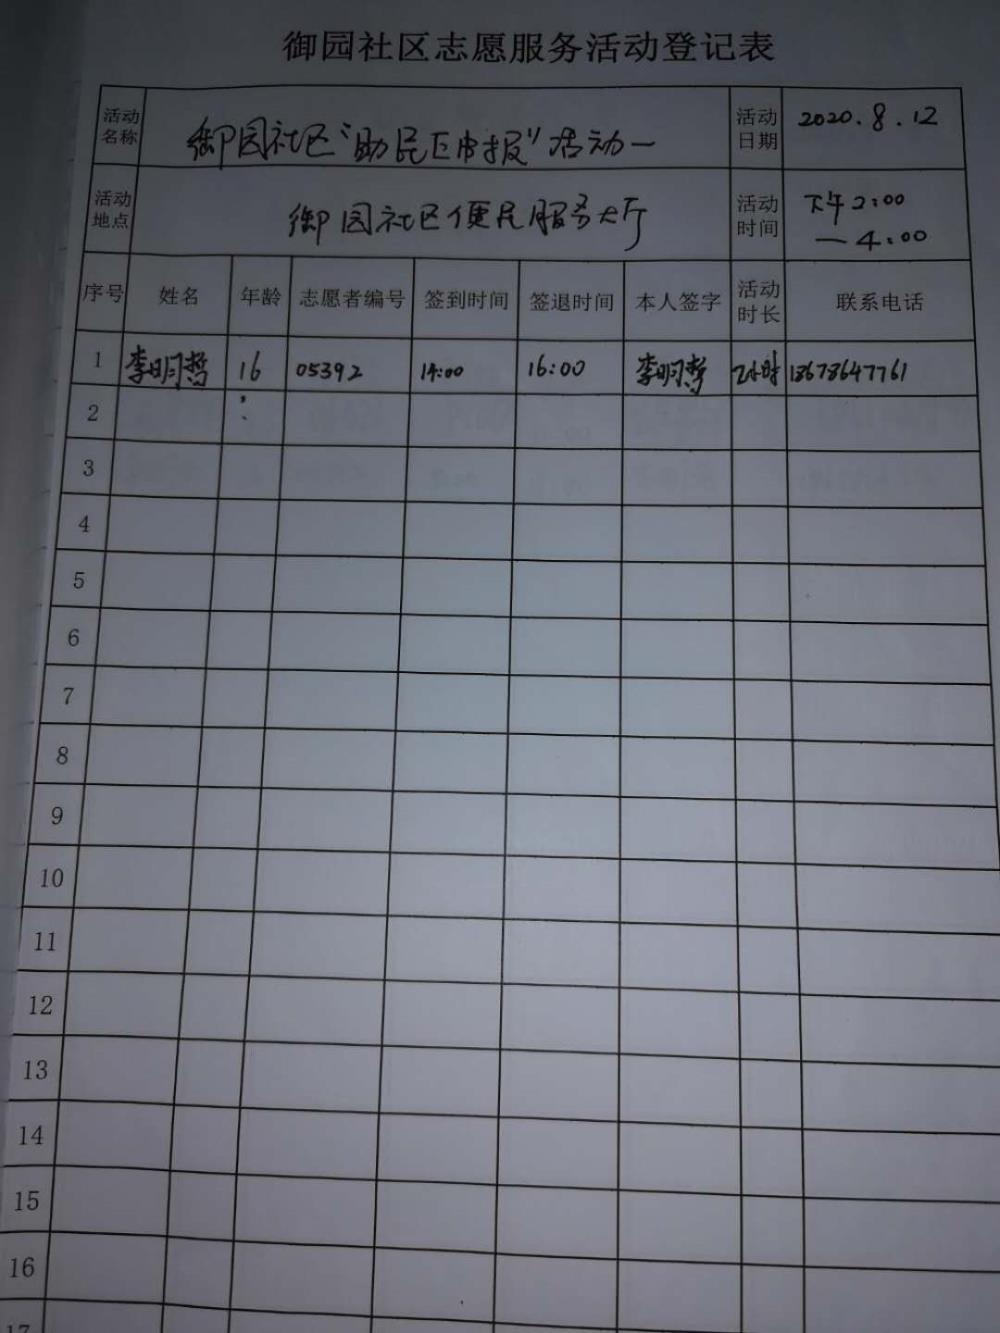 御园社区志愿服务活动登记表
活动名称 御园社区"助民E申报"活动一 活动日期 2020.8.12
活动地点 御园社区便民服务大厅 活动时间 下午2:00
—4:00
序号 姓名 年龄 志愿者编号 签到时间 签退时间 本人签字 活动时长 联系电话
1 李明哲 16 05392 14:00 16:00 李明哲 2小时 18678647761
2
3
4
5
6
7
8
9
10
11
12
13
14
15
16
17